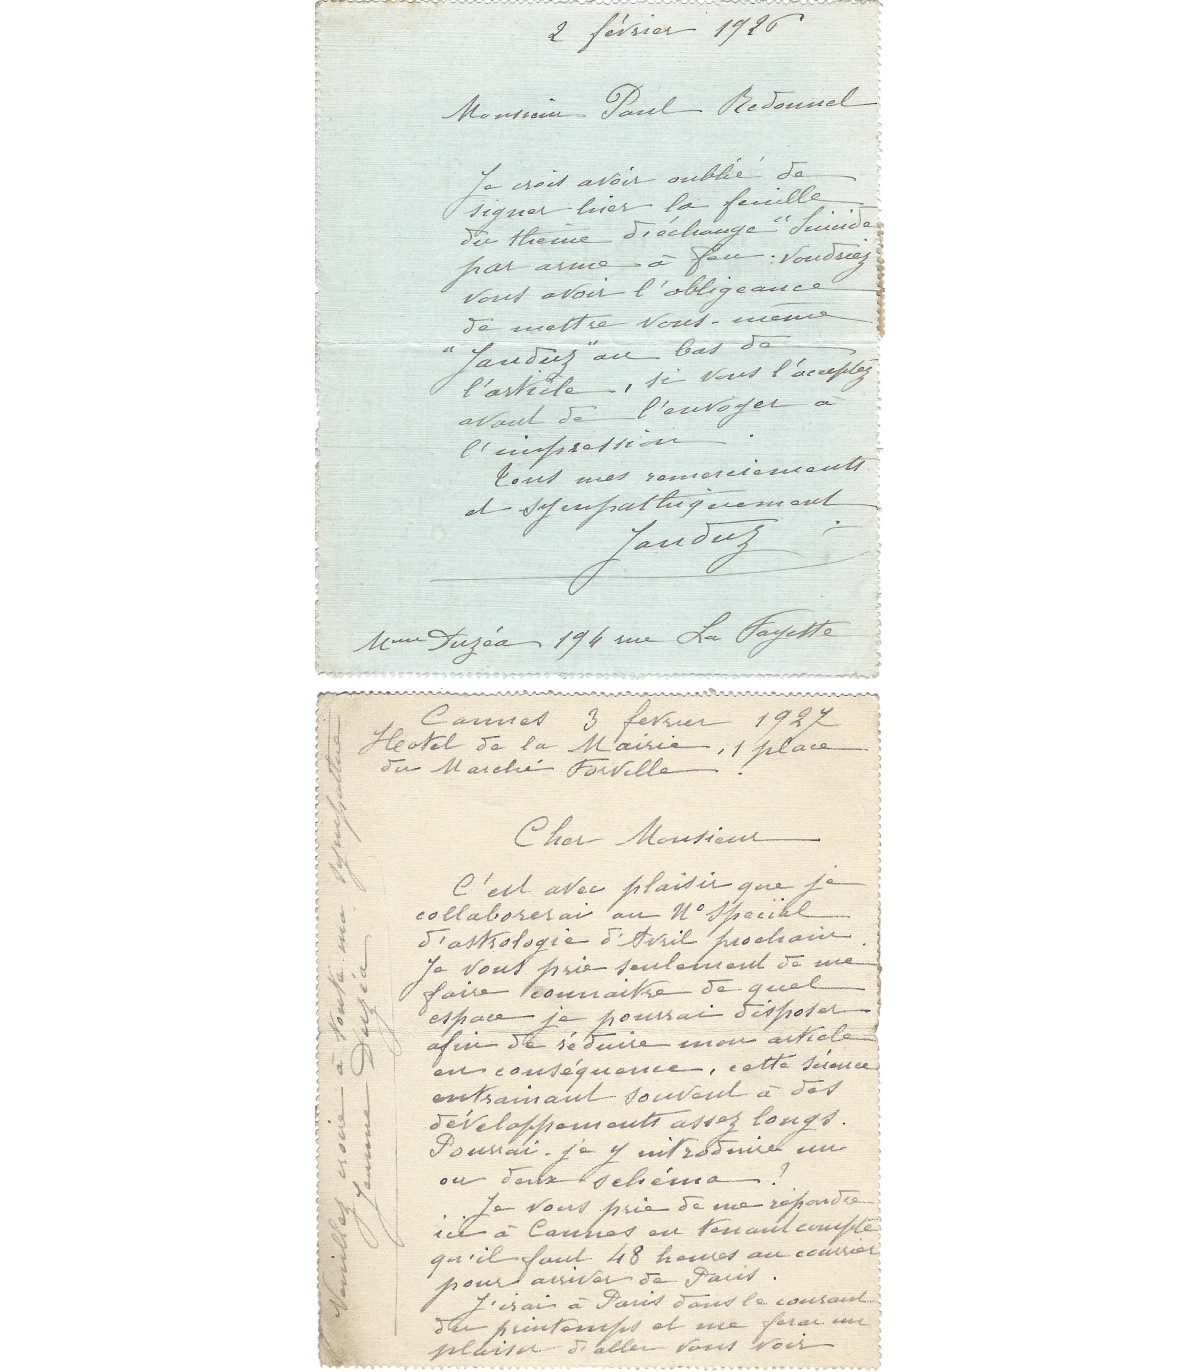 2 février 1926
Monsieur Paul Redonnel
Je crois avoir oublié de
signer hier la feuille
du thème d'échange "Suicide
par arme à feu. Voudriez
vous avoir l'obligeance
de mettre vous-même
"Janduz" au bas de
l'article, si vous l'acceptez
avant de l'envoyer à
l'impression.
Tous mes remerciements
et sympathiquement
Janduz
Mme Duzéa 194 rue La Fayette
Cannes 3 fevrier 1927
Hotel de la Mairie, 1 place
du Marché Forville.
Cher Monsieur
C'est avec plaisir que je
collaborerai au No spécial
d'astrologie d'Avril prochain.
Je vous prie seulement de me
faire connaitre de quel
espace je pourrai disposer
afin de réduire mon article
en conséquence, cette science
entrainant souvent à des
développements assez longs.
Pourrai-je y introduire un
ou deux schéma?
Je vous prie de me répondre
ici à Cannes en tenant compte
qu'il faut 48 heures au courrier
pour arriver de Paris.
J'irai à Paris dans le courant
du printemps et me ferai un
plaisir d'aller vous voir
Veuillez croire à toute ma sympathie
Jeanne Duzéa